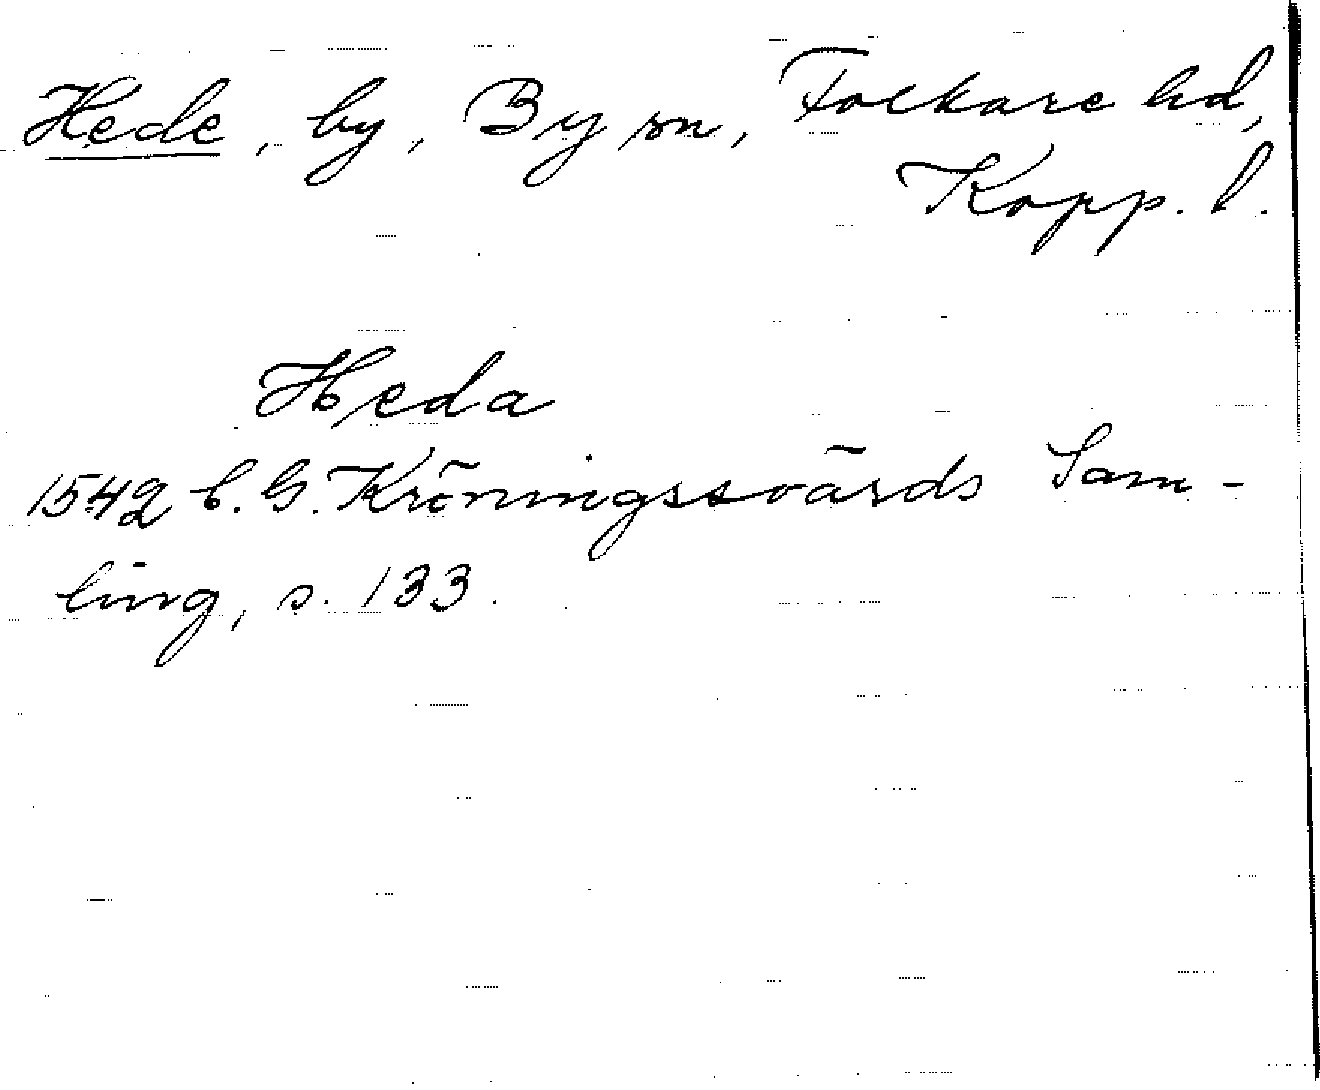 Hede, by, By sn, Folkare hd,
Kopp. l.
Heda
1542 C. G. Kröningssvärds Sam-
ling, s. 133.